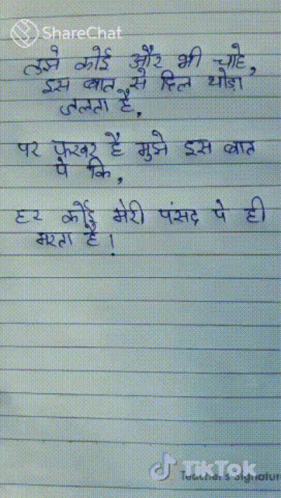 ShareChat
तुझे कोई और भी चाहे,
इस बात से दिल थोडा
जलता है,
पर फखर है मुझे इस बात
पे कि,
हर कोई मेरी पंसद पे ही
मरता है!
TikTok
Teacher's Signature